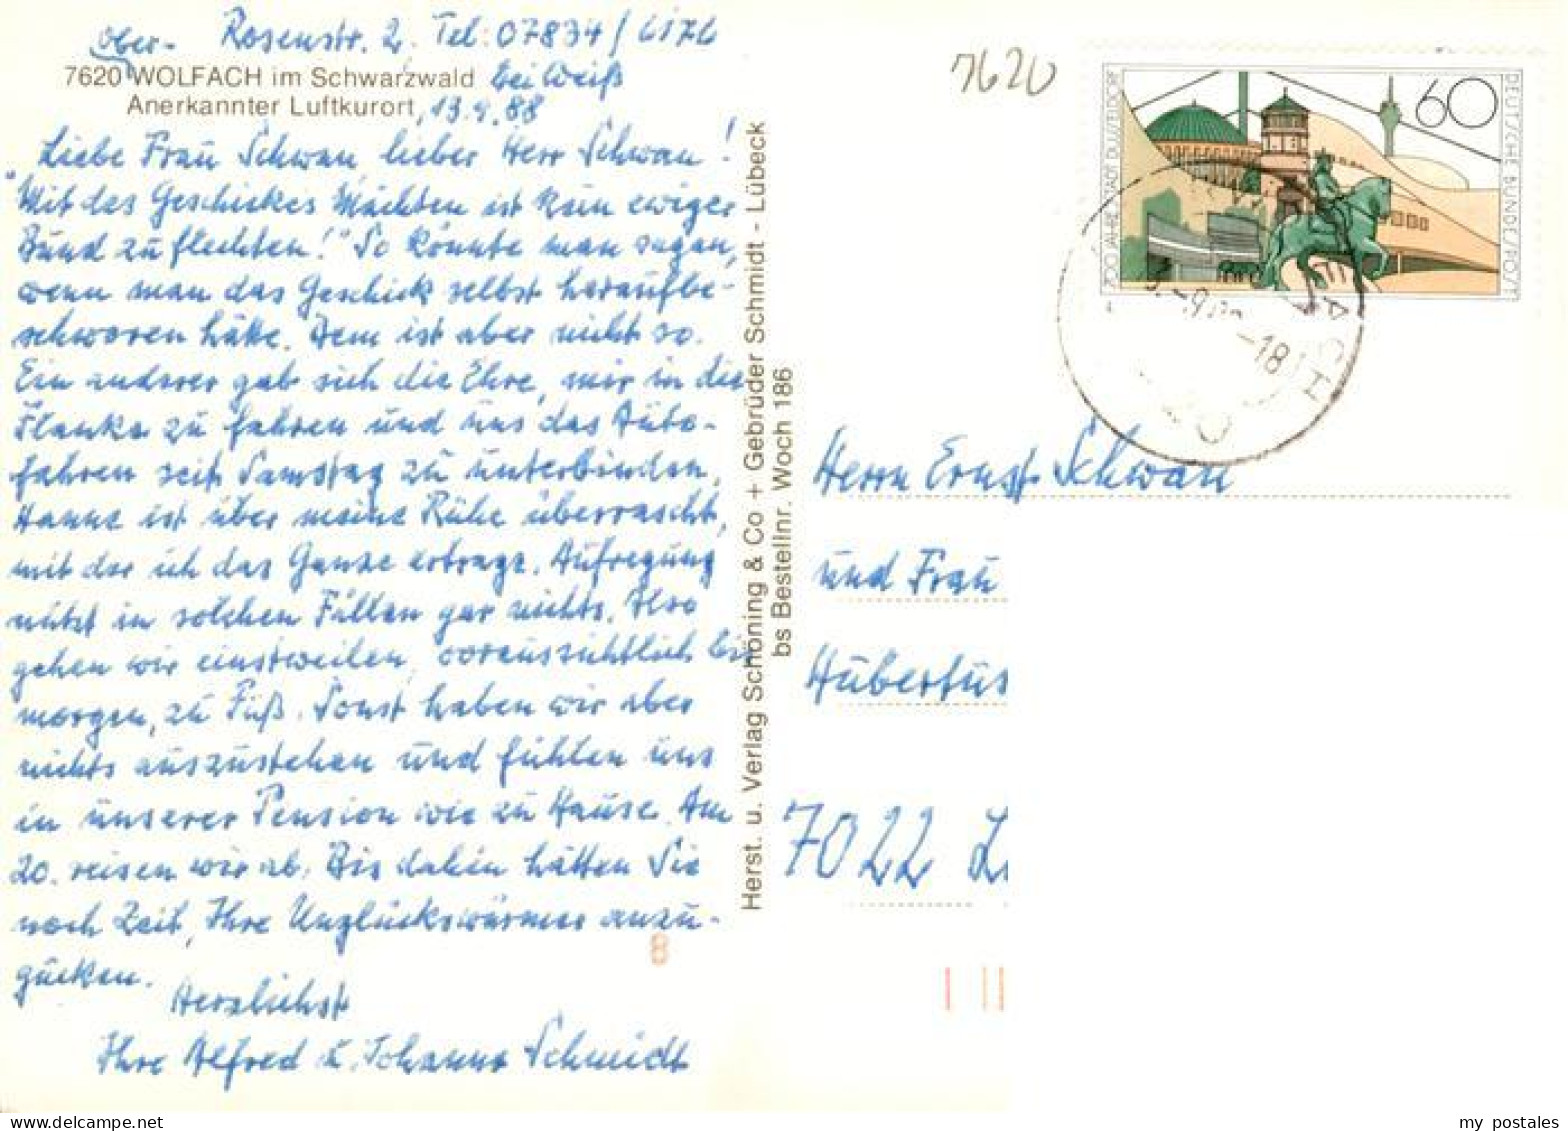 Ober- Rosenstr. 2. Tel: 07834/6176
7620 WOLFACH im Schwarzwald bei Weiß
Anerkannter Luftkurort, 13.9.88
Liebe Frau Schwan, lieber Herr Schwan!
"Mit des Geschickes Mächten ist kein ewiger
Bund zu flechten!" So könnte man sagen,
wenn man das Geschick selbst heraufbe-
schworen hätte. Dem ist aber nicht so.
Ein anderer gab sich die Ehre, mir in die
Flanke zu fahren und uns das Auto-
fahren seit Samstag zu unterbinden.
Hanne ist über meine Ruhe überrascht,
mit der ich das Ganze ertrage. Aufregung
nützt in solchen Fällen gar nichts. Also
gehen wir einstweilen, voraussichtlich bis
morgen, zu Fuß. Sonst haben wir aber
nichts auszustehen und fühlen uns
in unserer Pension wie zu Hause. Am
20. reisen wir ab. Bis dahin hätten Sie
noch Zeit, Ihre Unglückswürmer anzu-
gucken.
Herzlichst
Ihre Alfred u. Johanna Schmidt
8
Herst. u. Verlag Schöning & Co + Gebrüder Schmidt - Lübeck
bs Bestellnr. Woch 186
7620
700 JAHRE STADT DÜSSELDORF
60
DEUTSCHE BUNDESPOST
-18
Herrn Ernst Schwan
und Frau
Hubertus
7022 L
my postales